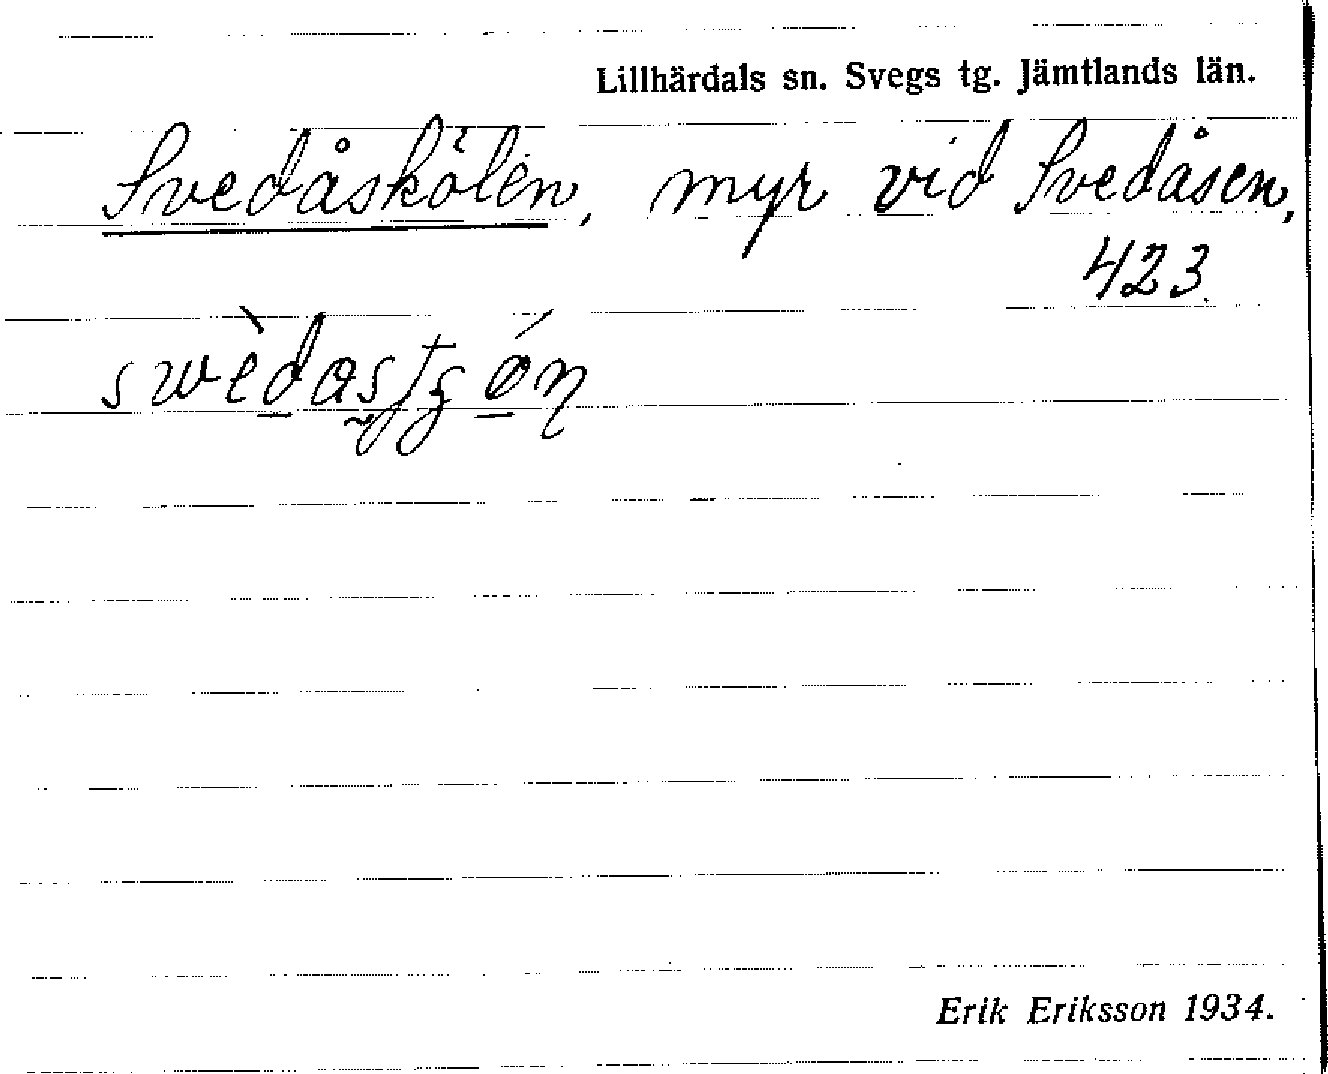 Lillhärdals sn. Svegs tg. Jämtlands län.
Svedåskölen, myr vid Svedåsen,
423.
Erik Eriksson 1934.